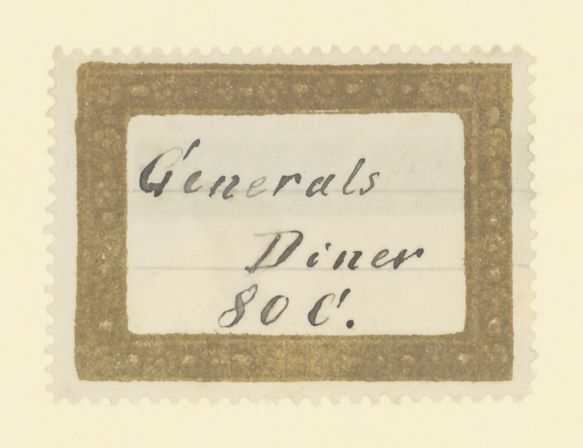 Generals
Diner
80 C.